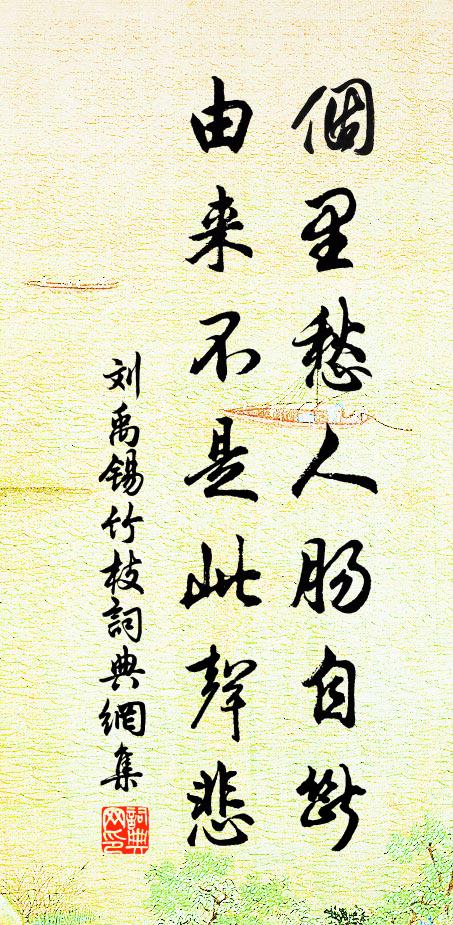 個里愁人肠自断
由来不是此聲悲
刘禹锡竹枝詞典網集
詞典
网印